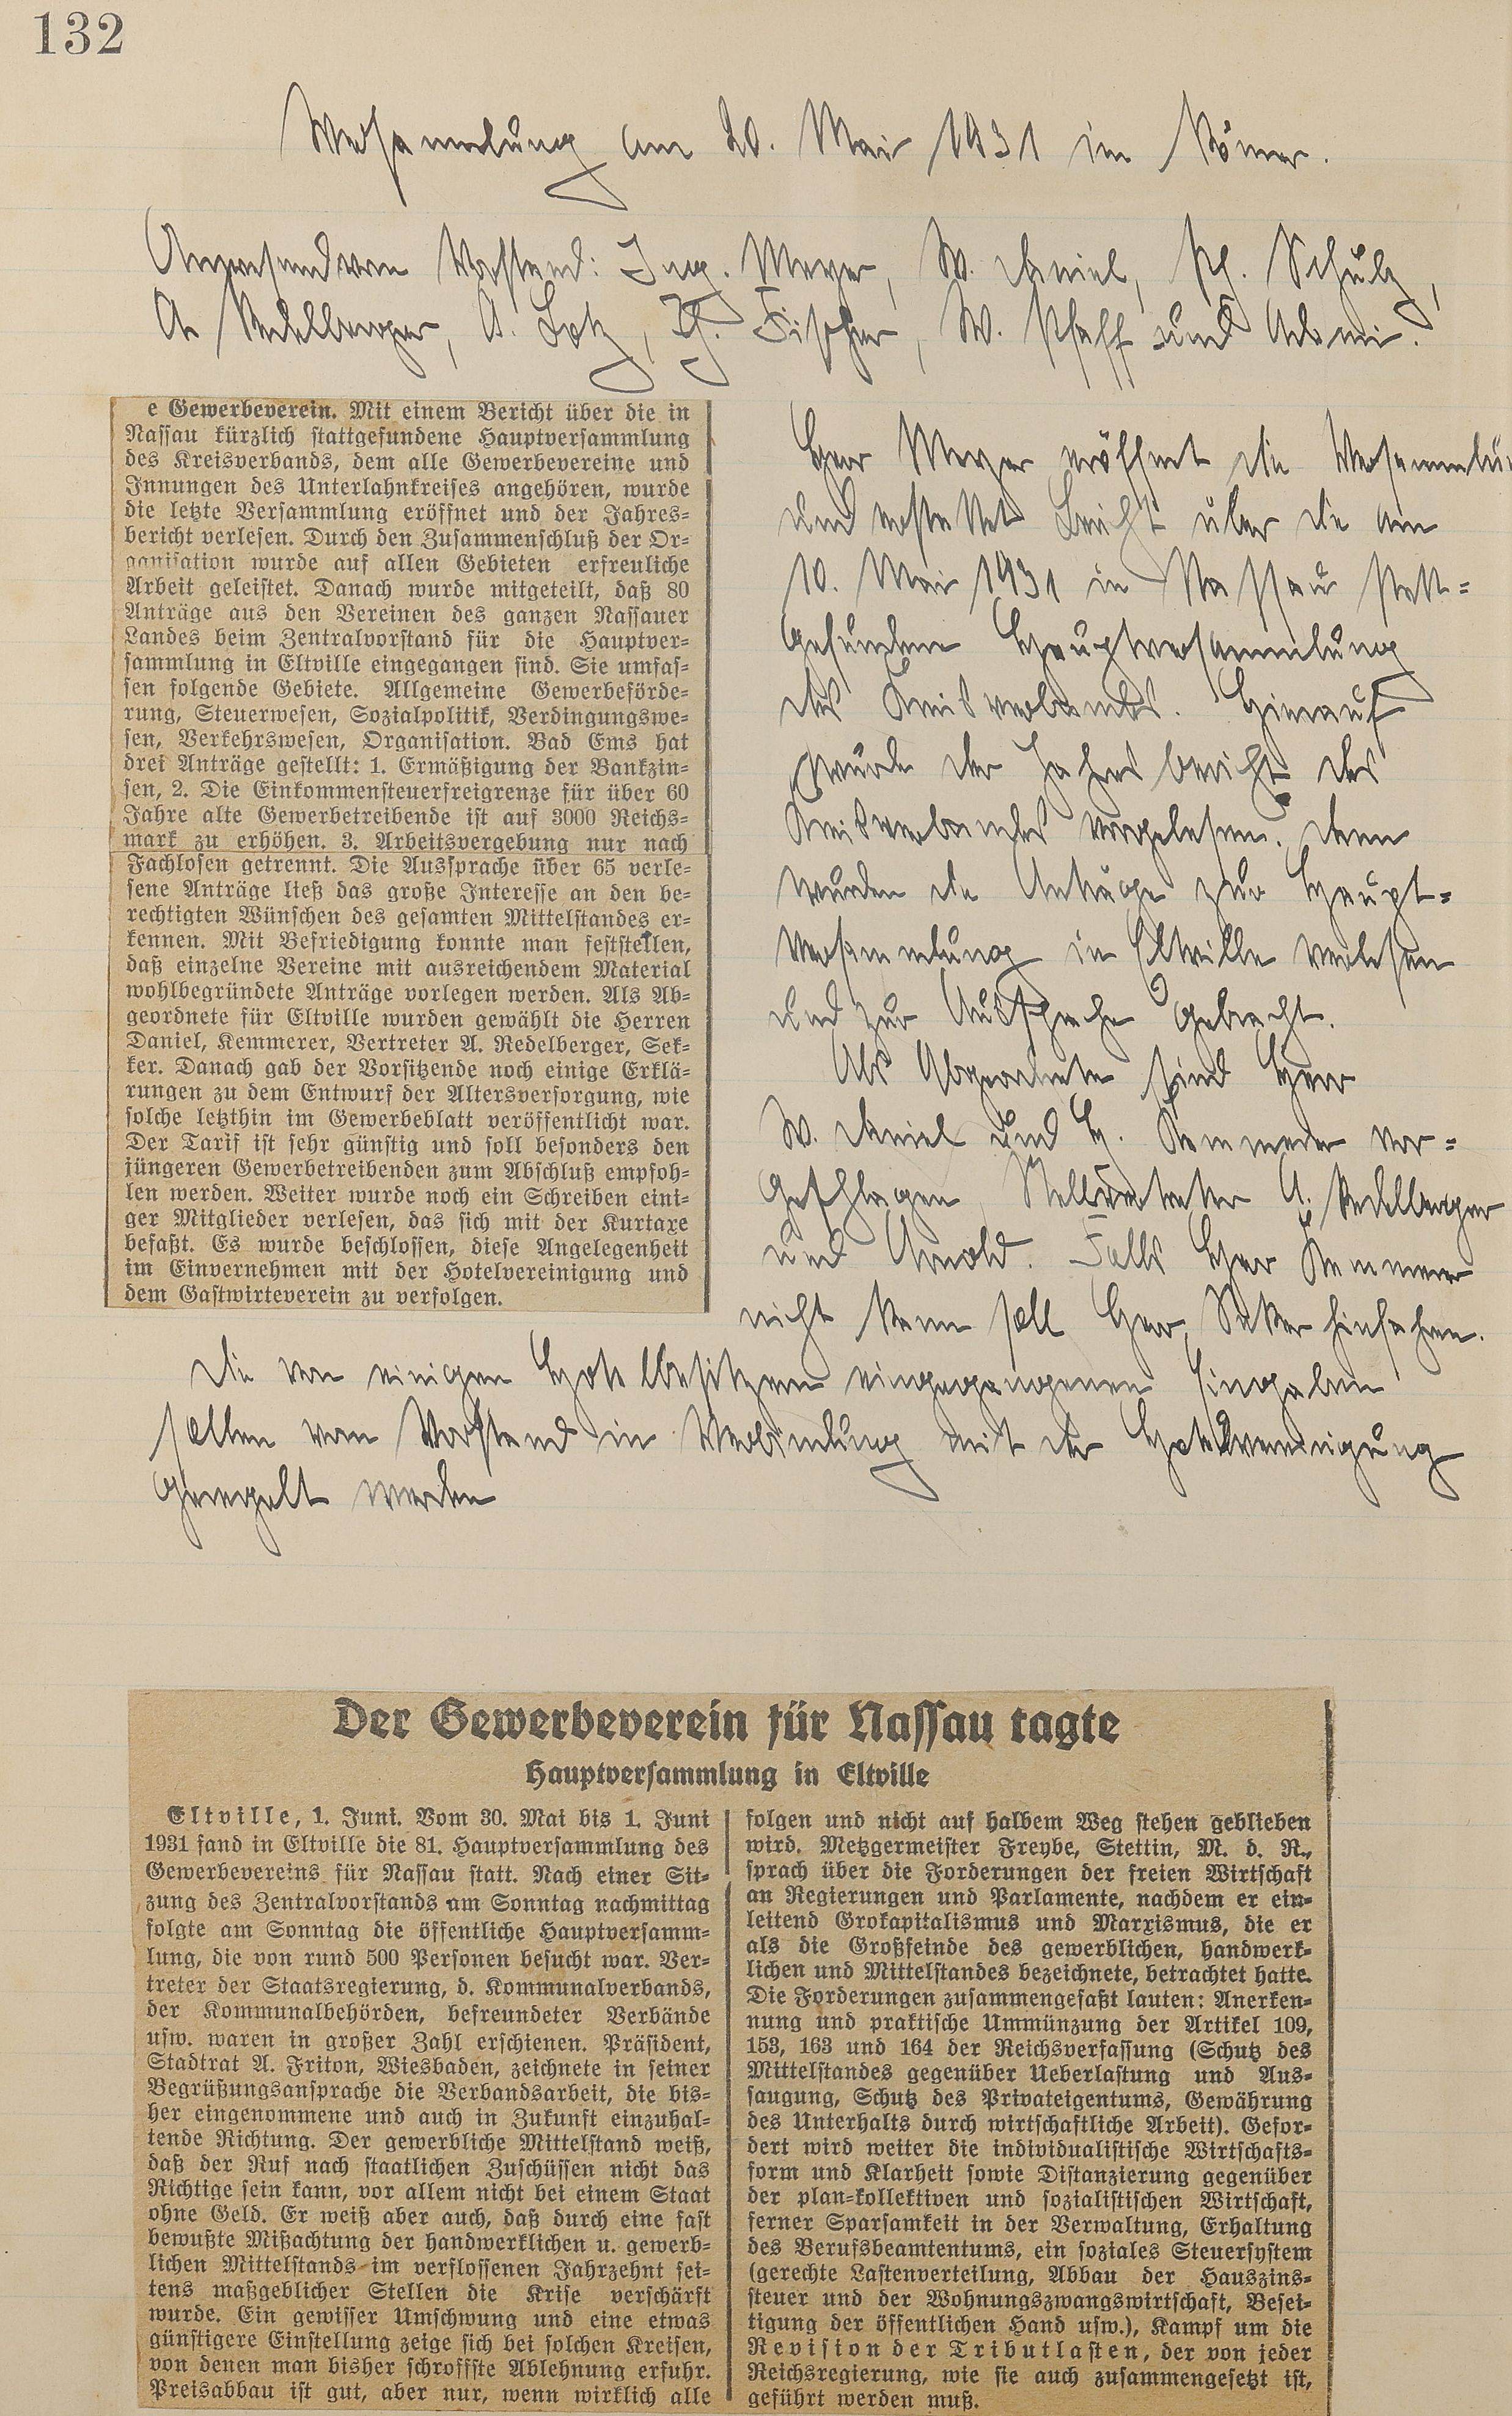 132
Versammlung am 20. Mai 1931 im Römer.
Anwesend vom Vorstand: Ing. Meyer, W. Daniel, Ph. Schulz,
A. Redelberger, A. Lotz, Th. Fischer, W. Pfaff und
e Gewerbeverein. Mit einem Bericht über die in
Nassau kürzlich stattgefundene Hauptversammlung
des Kreisverbands, dem alle Gewerbevereine und
Innungen des Unterlahnkreises angehören, wurde
die letzte Versammlung eröffnet und der Jahres-
bericht verlesen. Durch den Zusammenschluß der Or-
ganisation wurde auf allen Gebieten erfreuliche
Arbeit geleistet. Danach wurde mitgeteilt, daß 80
Anträge aus den Vereinen des ganzen Nassauer
Landes beim Zentralvorstand für die Hauptver-
sammlung in Eltville eingegangen sind. Sie umfas-
sen folgende Gebiete. Allgemeine Gewerbeförde-
rung, Steuerwesen, Sozialpolitik, Verdingungswe-
sen, Verkehrswesen, Organisation. Bad Ems hat
drei Anträge gestellt: 1. Ermäßigung der Bankzin-
sen, 2. Die Einkommensteuerfreigrenze für über 60
Jahre alte Gewerbetreibende ist auf 3000 Reichs-
mark zu erhöhen. 3. Arbeitsvergebung nur nach
Fachlosen getrennt. Die Aussprache über 65 verle-
sene Anträge ließ das große Interesse an den be-
rechtigten Wünschen des gesamten Mittelstandes er-
kennen. Mit Befriedigung konnte man feststellen,
daß einzelne Vereine mit ausreichendem Material
wohlbegründete Anträge vorlegen werden. Als Ab-
geordnete für Eltville wurden gewählt die Herren
Daniel, Kemmerer, Vertreter A. Redelberger, Sek-
ker. Danach gab der Vorsitzende noch einige Erklä-
rungen zu dem Entwurf der Altersversorgung, wie
solche letzthin im Gewerbeblatt veröffentlicht war.
Der Tarif ist sehr günstig und soll besonders den
jüngeren Gewerbetreibenden zum Abschluß empfoh-
len werden. Weiter wurde noch ein Schreiben eini-
ger Mitglieder verlesen, das sich mit der Kurtaxe
befaßt. Es wurde beschlossen, diese Angelegenheit
im Einvernehmen mit der Hotelvereinigung und
dem Gastwirteverein zu verfolgen.
Herr Meyer eröffnet die Versammlu
und erstattet Bericht über die am
10. Mai 1931 in Nassau statt-
gefundene Hauptversammlung
des Kreisverbandes. Hierauf
wurde der Jahresbericht des
Kreisverbandes vorgelesen. Dann
wurden die Anträge zur Haupt-
versammlung in Eltville verlesen
und zur Aussprache gebracht.
Als Abgeordnete sind Herr
W. Daniel und H. Kemmerer vor-
geschlagen, Stellvertreter A. Redelberger
und Arnold. Falls Herr Kemmerer
nicht kann soll Herr Sekker hinfahren.
Die von einigen Hotelbesitzern eingegangenen Eingaben
sollen vom Vorstand in Verbindung mit der Hotelvereinigung
geregelt werden
Der Gewerbeverein für Nassau tagte
Hauptversammlung in Eltville
Eltville, 1. Juni. Vom 30. Mai bis 1. Juni
1931 fand in Eltville die 81. Hauptversammlung des
Gewerbevereins für Nassau statt. Nach einer Sit-
zung des Zentralvorstands am Sonntag nachmittag
folgte am Sonntag die öffentliche Hauptversamm-
lung, die von rund 500 Personen besucht war. Ver-
treter der Staatsregierung, d. Kommunalverbands,
der Kommunalbehörden, befreundeter Verbände
usw. waren in großer Zahl erschienen. Präsident,
Stadtrat A. Friton, Wiesbaden, zeichnete in seiner
Begrüßungsansprache die Verbandsarbeit, die bis-
her eingenommene und auch in Zukunft einzuhal-
tende Richtung. Der gewerbliche Mittelstand weiß,
daß der Ruf nach staatlichen Zuschüssen nicht das
Richtige sein kann, vor allem nicht bei einem Staat
ohne Geld. Er weiß aber auch, daß durch eine fast
bewußte Mißachtung der handwerklichen u. gewerb-
lichen Mittelstands im verflossenen Jahrzehnt sei-
tens maßgeblicher Stellen die Krise verschärft
wurde. Ein gewisser Umschwung und eine etwas
günstigere Einstellung zeige sich bei solchen Kreisen,
von denen man bisher schroffste Ablehnung erfuhr.
Preisabbau ist gut, aber nur, wenn wirklich alle
folgen und nicht auf halbem Weg stehen geblieben
wird. Metzgermeister Freybe, Stettin, M. d. R.,
sprach über die Forderungen der freien Wirtschaft
an Regierungen und Parlamente, nachdem er ein-
leitend Grokapitalismus und Marxismus, die er
als die Großfeinde des gewerblichen, handwerk-
lichen und Mittelstandes bezeichnete, betrachtet hatte.
Die Forderungen zusammengefaßt lauten: Anerken-
nung und praktische Ummünzung der Artikel 109,
153, 163 und 164 der Reichsverfassung (Schutz des
Mittelstandes gegenüber Ueberlastung und Aus-
saugung, Schutz des Privateigentums, Gewährung
des Unterhalts durch wirtschaftliche Arbeit). Gefor-
dert wird weiter die individualistische Wirtschafts-
form und Klarheit sowie Distanzierung gegenüber
der plan-kollektiven und sozialistischen Wirtschaft,
ferner Sparsamkeit in der Verwaltung, Erhaltung
des Berufsbeamtentums, ein soziales Steuersystem
(gerechte Lastenverteilung, Abbau der Hauszins-
steuer und der Wohnungszwangswirtschaft, Besei-
tigung der öffentlichen Hand usw.), Kampf um die
Revision der Tributlasten, der von jeder
Reichsregierung, wie sie auch zusammengesetzt ist,
geführt werden muß.